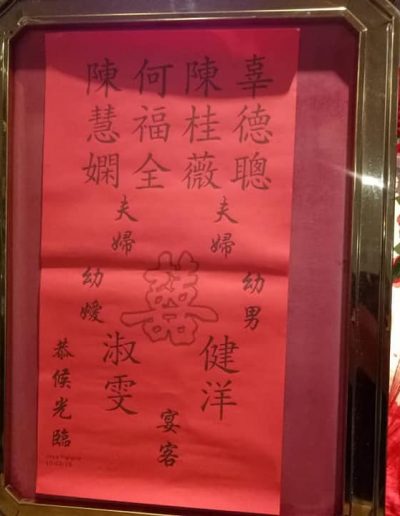 辜德聰
陳桂薇
夫婦
幼男
健洋
何福全
陳慧嫻
夫婦
幼嫒
淑雯
囍
宴客
恭候光臨